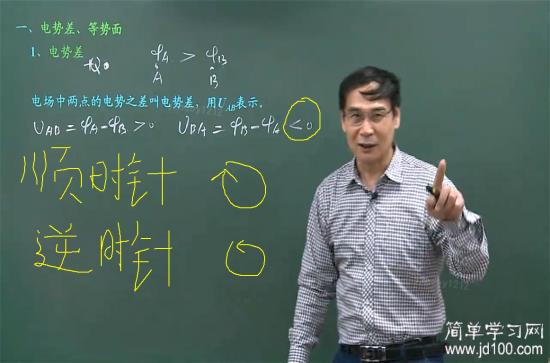 一、电势差、等势面
1、电势差
+Q φA > φB
A B
电场中两点的电势之差叫电势差，用UAB表示。
UAB = φA-φB > 0 UBA = φB-φA < 0
顺时针
逆时针
简单学习网
www.jd100.com